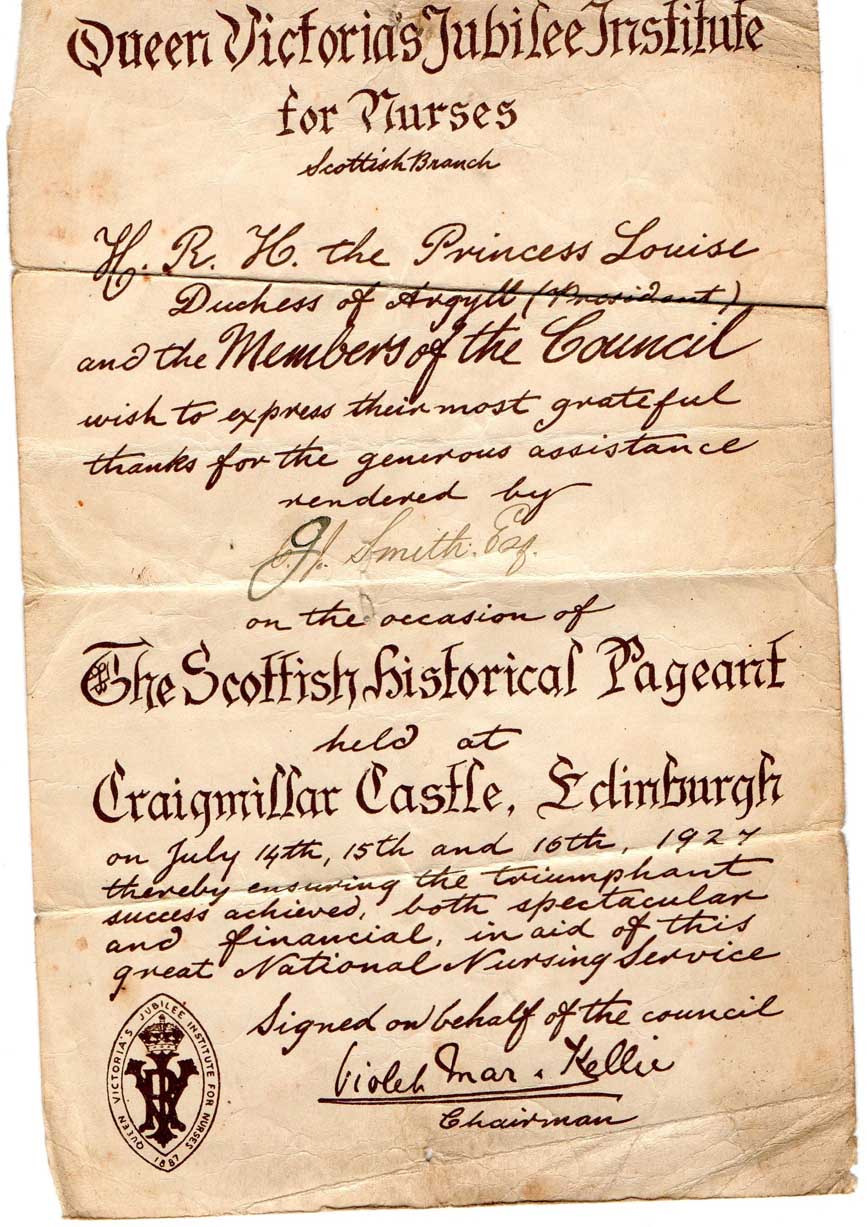 Queen Victoria's Jubilee Institute
for Nurses
Scottish Branch
H. R. H. the Princess Louise
Duchess of Argyll (President)
and the Members of the Council
wish to express their most grateful
thanks for the generous assistance
rendered by
Smith. Esq.
on the occasion of
The Scottish Historical Pageant
held at
Craigmillar Castle, Edinburgh
on July 14th, 15th and 16th, 1927
thereby ensuring the triumphant
success achieved, both spectacular
and financial, in aid of this
great National Nursing Service
Signed on behalf of the council
Violet Mar & Kellie
Chairman
QUEEN VICTORIA'S JUBILEE INSTITUTE FOR NURSES
1887